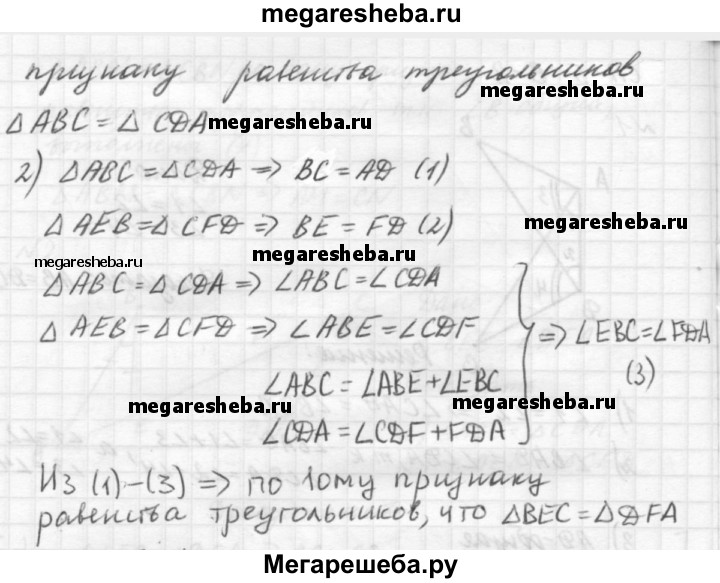 megaresheba.ru
признаку равенства треугольников
megaresheba.ru
△ ABC = △ CDA megaresheba.ru
2) △ABC = △CDA => BC = AD (1)
△ AEB = △ CFD => BE = FD (2) megaresheba.ru
megaresheba.ru megaresheba.ru
△ ABC = △ CDA => ∠ABC = ∠CDA
△ AEB = △CFD => ∠ABE = ∠CDF => ∠EBC = ∠FDA
(3)
∠ABC = ∠ABE + ∠EBC
megaresheba.ru megaresheba.ru
∠CDA = ∠CDF + FDA
Из (1) – (3) => по 1ому признаку
равенства треугольников, что △BEC = △DFA
Мегарешеба.ру